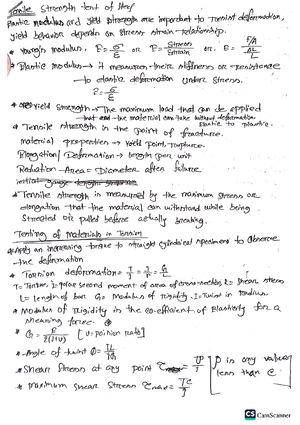 Tensile Strength test of they
Elastic modulus and yield strength are important to resist deformation,
yield behavior depends on stress strain relationship.
* Young's modulus, E = σ/ε or E = Stress/Strain or, E = F/A / ΔL/L
* Elastic modulus → it measures their stiffness or resistance
to elastic deformation under stress.
E = σ/ε
* Yield Strength → The maximum load that can be applied
that the material can take without deformation
Elastic to plastic.
* Tensile strength is the point of fracture.
material properties → yield point, rupture.
Elongation/Deformation → length per unit
Radiation Area = Diameter after failure
* Tensile strength is measured by the maximum stress or
elongation that the material can withstand while being
streched or pulled before actually breaking.
Testing of materials in Torsion
* Apply an increasing torque to straight cylindrical specimens to observe
the deformation
* Torsion deformation =
T = Torque, J = polar second moment of area of cross-section, = shear stress
L = length of bar G = Modulus of rigidity, = Twist in radian.
* Modulus of Rigidity is the co-efficient of elasticity for a
shearing force.
* G = E/2(1+υ) [υ = poission ratio]
* Angle of twist Φ = TL/JG
* Shear stress at any point τ = Tρ/J [ρ is any value
less than c.
* maximum shear stress τmax = Tc/J
CS CamScanner